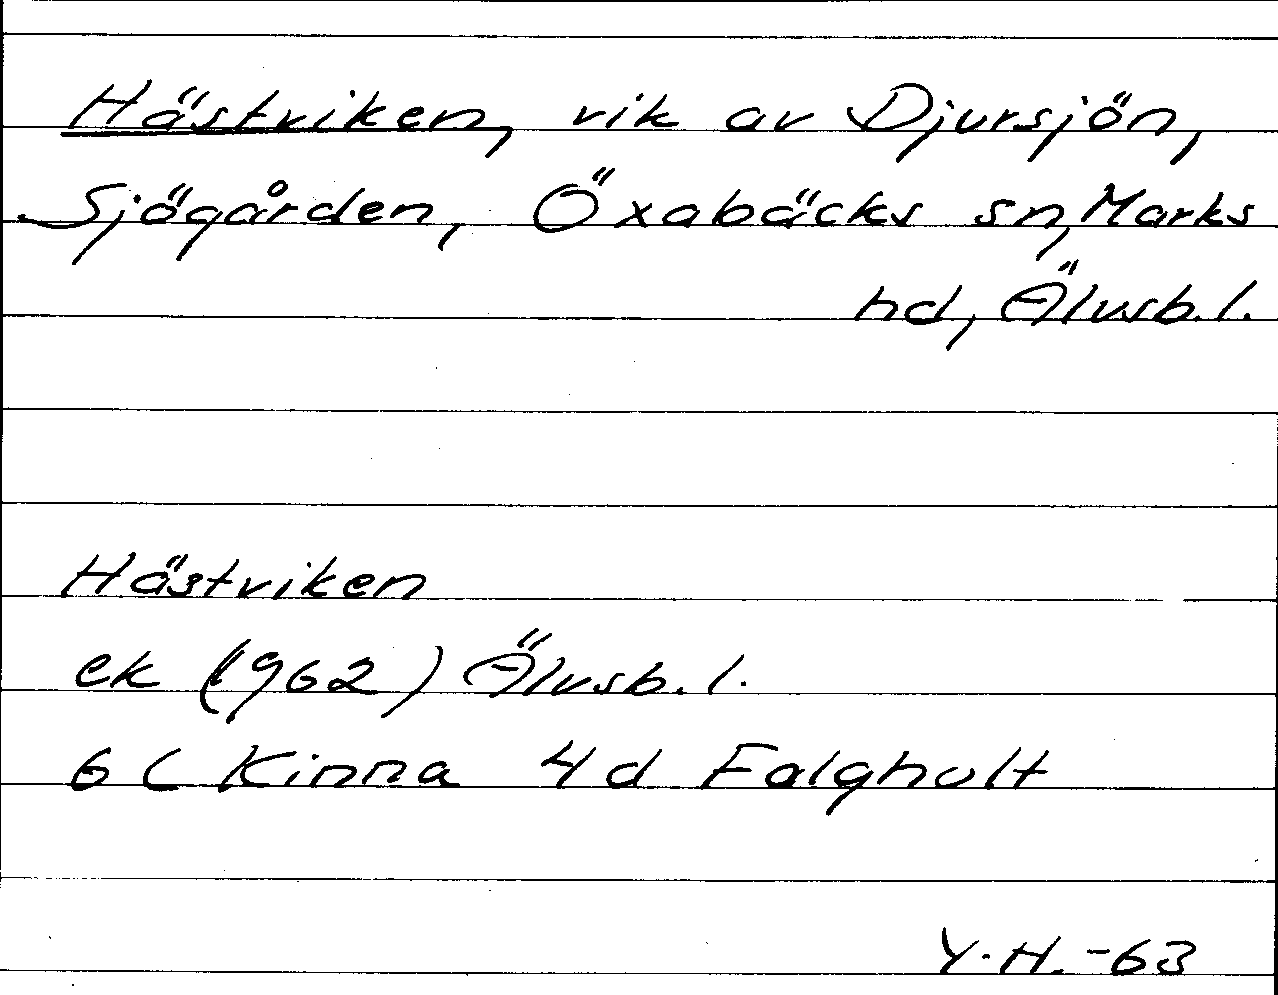 Hästviken, vik av Djursjön,
Sjögården, Öxabäcks sn, Marks
hd, Älvsb. l.
Hästviken
ek (1962) Älvsb. l.
6 C Kinna 4 d Falghult
Y. H. -63